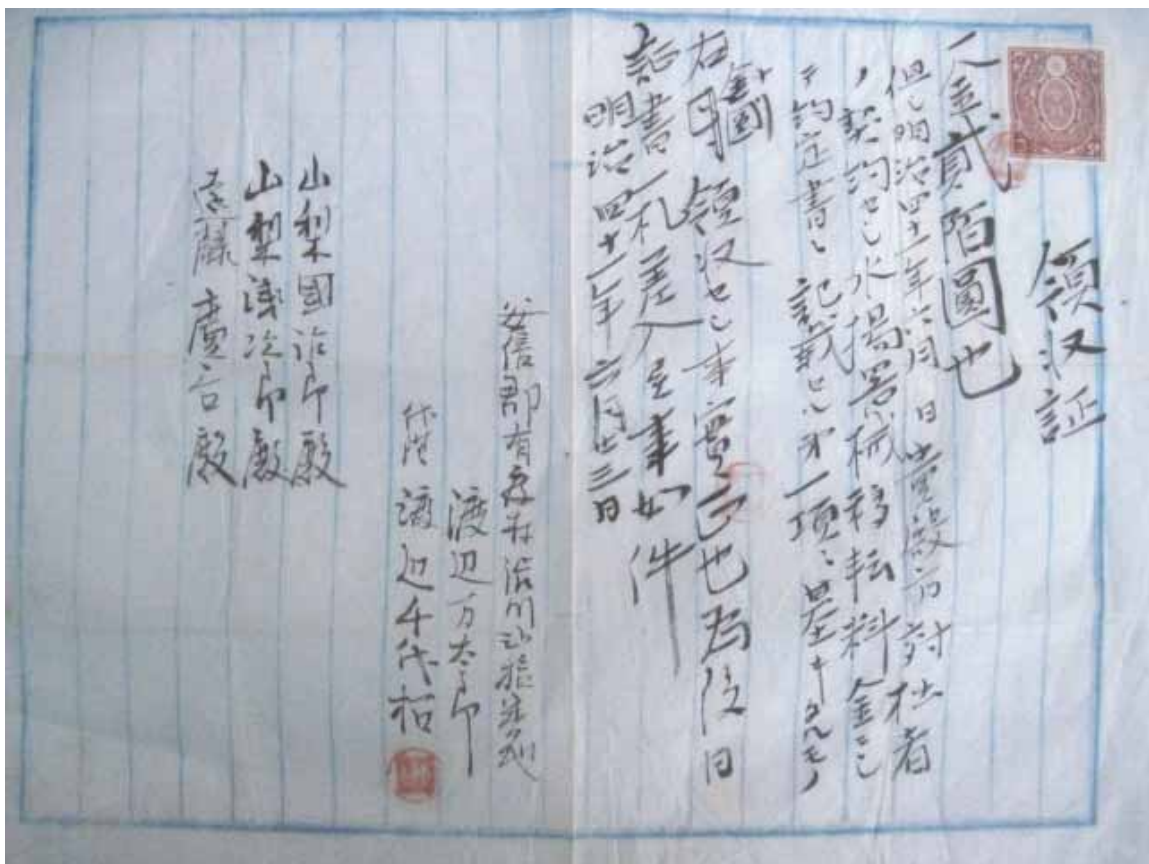 領収証
一金貳陌圓也
但シ明治四十一年六月 日貴殿方対拙者
ノ契約セシ水揚器械移転料金ニシ
テ約定書ニ記載セル第一項ニ基キタルモノ
右金圓領収セシ事実正也為後日
証書一札差入置事如件
明治四十一年六月廿三日
安倍郡有度村
渡辺万太郎
渡辺千代松
山梨國治郎殿
山梨浅次郎殿
遠藤庸吉殿